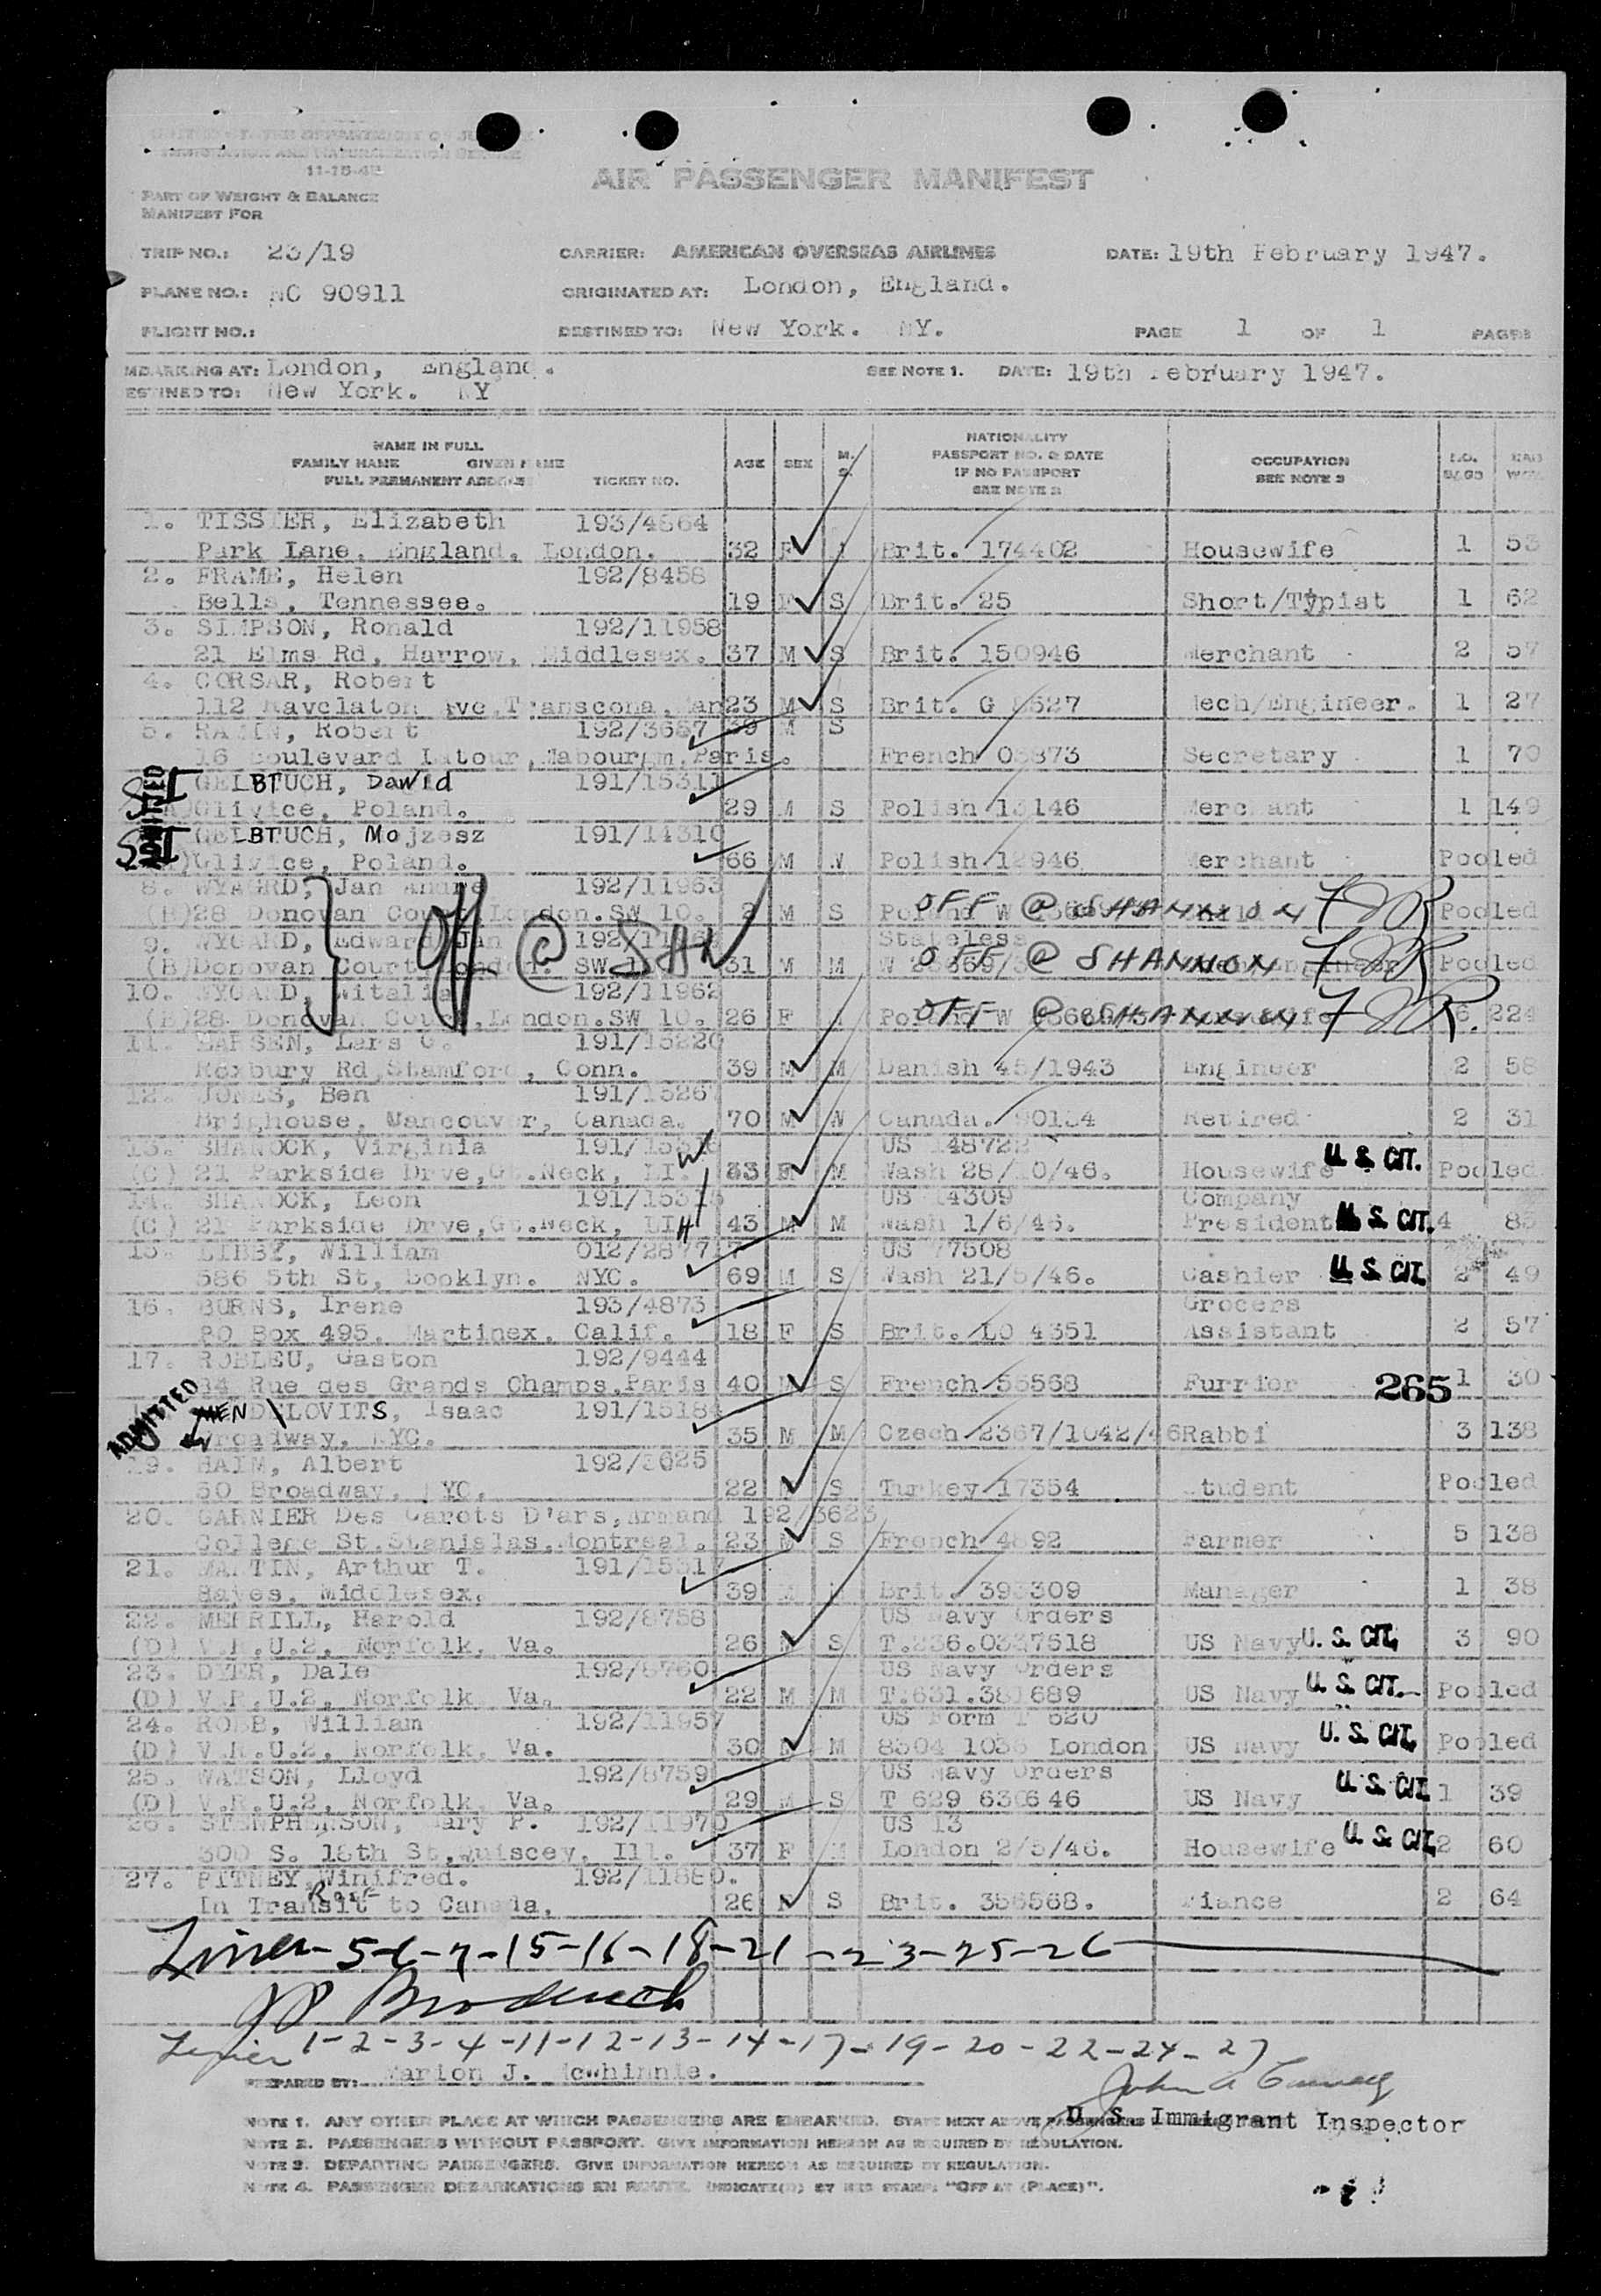 11-15-4
PART OF WEIGHT & BALANCE
MANIFEST FOR
AIR PASSENGER MANIFEST
TRIP NO.: 23/19 CARRIER: AMERICAN OVERSEAS AIRLINES DATE: 19th February 1947.
PLANE NO.: NC 90911 ORIGINATED AT: London, England.
FLIGHT NO.: DESTINED TO: New York. NY. PAGE 1 OF 1 PAGES
MBARKING AT: London, England. SEE NOTE 1. DATE: 19th February 1947.
ESTINED TO: New York. NY
NAME IN FULL
FAMILY NAME GIVEN NAME
FULL PERMANENT ADDRESS TICKET NO. AGE SEX M. S. NATIONALITY PASSPORT NO. & DATE IF NO PASSPORT SEE NOTE 2 OCCUPATION SEE NOTE 3 NO. BAGS
1. TISSIER, Elizabeth 193/4864
Park Lane, England, London. 32 F Brit. 174402 Housewife 1 53
2. FRAME, Helen 192/8458
Bells, Tennessee. 19 F S Brit. 25 Short/Typist 1 62
3. SIMPSON, Ronald 192/11958
21 Elms Rd, Harrow, Middlesex. 37 M S Brit. 150946 Merchant 2 57
4. CORSAR, Robert
112 Ave, Transcona, Man 23 M S Brit. G Mech/Engineer. 1 27
5. Robert 192/3687 39 M S
16 Boulevard Latour, Paris. French Secretary 1 70
ADMITTED
SI GELBTUCH, Dawid 191/15311
Glivice, Poland. 29 M S Polish 13146 Merchant 1 149
SI GELBTUCH, Mojzesz 191/14310
Glivice, Poland. 66 M W Polish 12946 Merchant Pooled
8. Jan Andre 192/11963
(B) 28 Donovan Court, London. SW 10. 2 M S OFF @ SHANNON Pooled
9. WYGARD, Edward Jan Stateless
(B) Donovan Court London. SW 31 M M OFF @ SHANNON Pooled
} Off @ SHN
10. WYGARD, Witalia 192/11962
(B) 28 Donovan Court, London. SW 10. 26 F OFF @ SHANNON 6 224
11. LARSEN, Lars 191/15220
Roxbury Rd, Stamford, Conn. 39 M M Danish 45/1943 Engineer 2 58
12. JONES, Ben 191/1526
Brighouse, Vancouver, Canada. 70 M W Canada. 90134 Retired 2 31
13. SHANOCK, Virginia US 148722
(C) 21 Parkside Drve, Gt. Neck, LI. W 33 F M Wash 28/10/46. Housewife U. S. CIT. Pooled
14. SHANOCK, Leon US 14309 Company
(C) 21 Parkside Drve, Gt. Neck, LI H 43 M M Wash 1/6/46. President U. S. CIT. 4 83
15. LIBBY, William 012/287717 US 77508
586 5th St, Booklyn. NYC. 69 M S Wash 21/5/46. Cashier U. S. CIT. 2 49
16. BURNS, Irene 193/4873 Grocers
PO Box 495. Martinex. Calif. 18 F S Brit. LO 4351 Assistant 2 57
17. ROBLEU, Gaston 192/9444
Rue des Grands Champs, Paris 40 M S French 55568 Furrior 265 1 30
ADMITTED
Isaac 191/15184
Broadway, NYC. 35 M M Czech 2367/1042/46 Rabbi 3 138
19. HAIM, Albert 192/3625
50 Broadway, NYC. 22 M S Turkey 17354 Student Pooled
20. GARNIER Des Garots D'ars, Armand 192/3623
College St. Stanislas, Montreal. 23 M S French 4892 Farmer 5 138
21. MARTIN, Arthur T. 191/15317
Hayes, Middlesex. 39 M M Brit. 393309 Manager 1 38
22. MERRILL, Harold 192/8758 US Navy Orders
(D) V.R.U.2, Norfolk, Va. 26 M S T.236.0337518 US Navy U. S. CIT. 3 90
23. DYER, Dale 192/8760 US Navy Orders
(D) V.R.U.2, Norfolk Va. 22 M M T.631.381689 US Navy U. S. CIT. Pooled
24. ROBB, William 192/11957 US Form
(D) V.R.U.2, Norfolk, Va. 30 M M London US Navy U. S. CIT. Pooled
25. WATSON, Lloyd 192/8759 US Navy Orders
(D) V.R.U.2, Norfolk Va. 29 M S T 629 630646 US Navy U. S. CIT. 1 39
26. STENPHENSON, Mary P. 192/11970 US 13
300 S. 18th St, Quiscey, Ill. 37 F M London 2/5/46. Housewife U. S. CIT. 2 60
27. PITNEY, Winifred. 192/11880.
Rose
In Transit to Canada. 26 S Brit. 356568. Fiance 2 64
5-6-7-15-16-18-21-23-25-26
1-2-3-4-11-12-13-14-17-19-20-22-24-27
PREPARED BY: Marion J. Mcwhinnie.
U. S. Immigrant Inspector
NOTE 1. ANY OTHER PLACE AT WHICH PASSENGERS ARE EMBARKED. STATE NEXT ABOVE PASSENGERS
NOTE 2. PASSENGERS WITHOUT PASSPORT. GIVE INFORMATION HEREON AS REQUIRED BY REGULATION.
NOTE 3. DEPARTING PASSENGERS. GIVE INFORMATION HEREON AS REQUIRED BY REGULATION.
NOTE 4. PASSENGER DEBARKATIONS EN ROUTE. INDICATE(D) BY STAMP: "OFF AT (PLACE)".